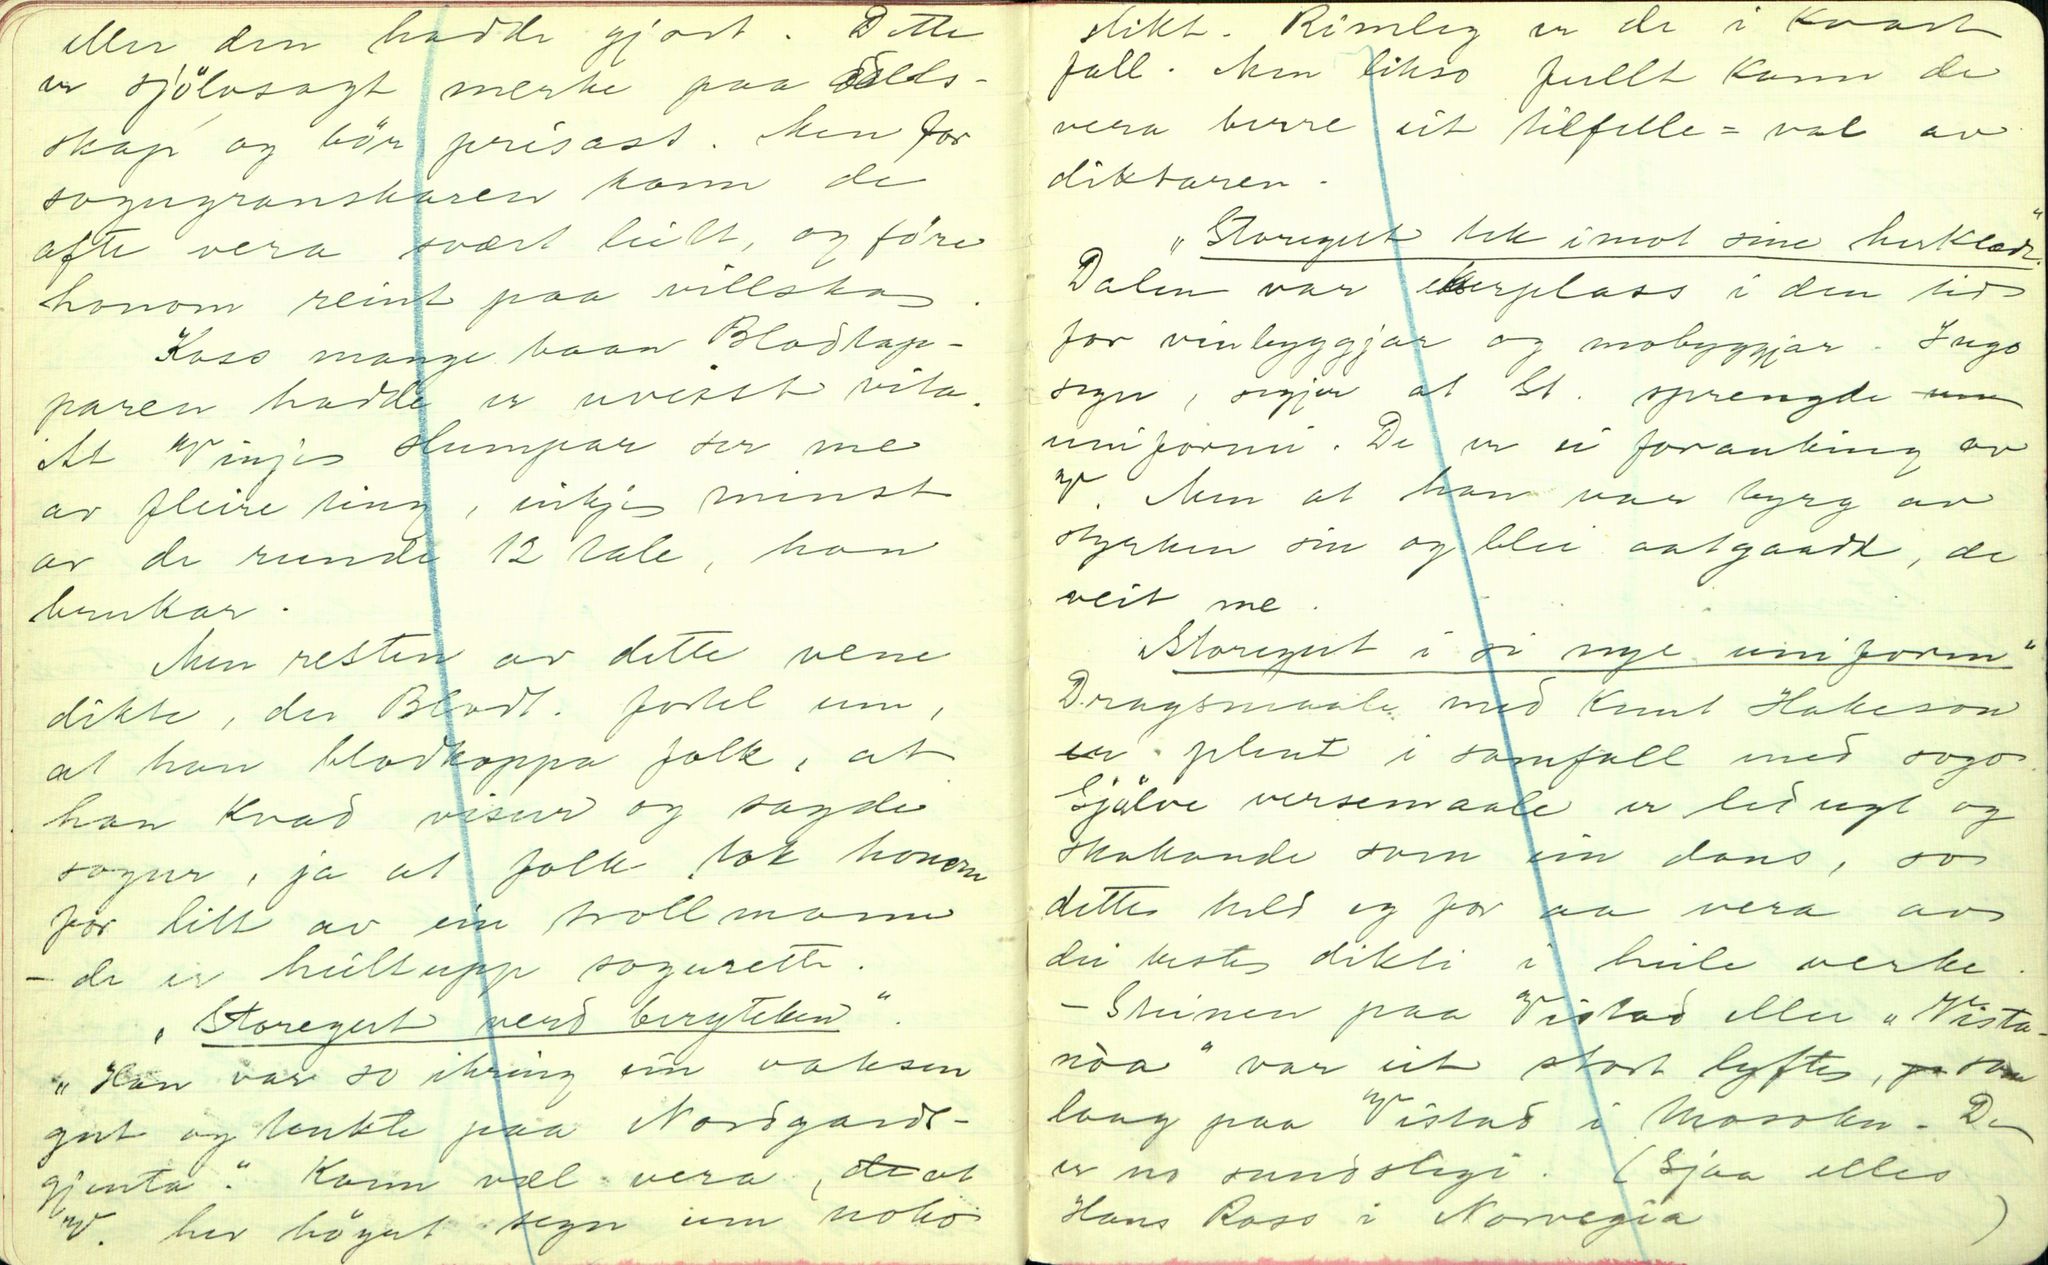 eller den hadde gjort. Dette
er sjölvsagt merke paa dikts-
skap og bör prisast. Men for
sogugranskaren kann de
ofte vera svært leidt, og före
honom reint paa villska.
Koss mange baan Blodtap-
paren hadde er uvisst vita.
At Vinje slumpar ser me
av fleire ting, inkje minst
av de runde 12 tale, han
brukar.
Men resten av dette vene
dikte, der Blodt. fortel um,
at han blodkoppa folk, at
han kvad visur og sagde
sogur, ja at folk tok honom
for litt av ein trollmann
- de er heiltupp sogurette.
„Storegut verd bergteken“.
„Han var so ikring ein vaksen
gut og tenkte paa Nordgards-
gjenta“. Kann væl vera, de at
V. her höyrt segn um noko
slikt. Rimleg er de i kvart
fall. Men likso fullt kann de
vera berre eit tilfelle = val av
diktaren.
„Storegut tek imot sine herklæde“.
Dalen var ekserplass i den tid
for vinbyggjar og mobyggjar. Ingo
segn, segjer at St. sprengde um
uniformi. De er ei forauking av
V. Men at han var byrg av
styrken sin og blei aatgaadd, de
veit me.
Storegut i si nye uniform“
Dragsmaale med Knut Hakeson
er plent i samfall med sogo
Sjölve versemaale er ledugt og
skakande som ein dans, so
dette held eg for aa vera av
dei beste dikti i heile verke.
- Steinen paa Vistad eller „Vista-
nöa“ var eit stort lyfte, ja som
laag paa Vistad i Mosokn. De
er no sundslegi. (Sjaa elles
Hans Ross i Norvegia )